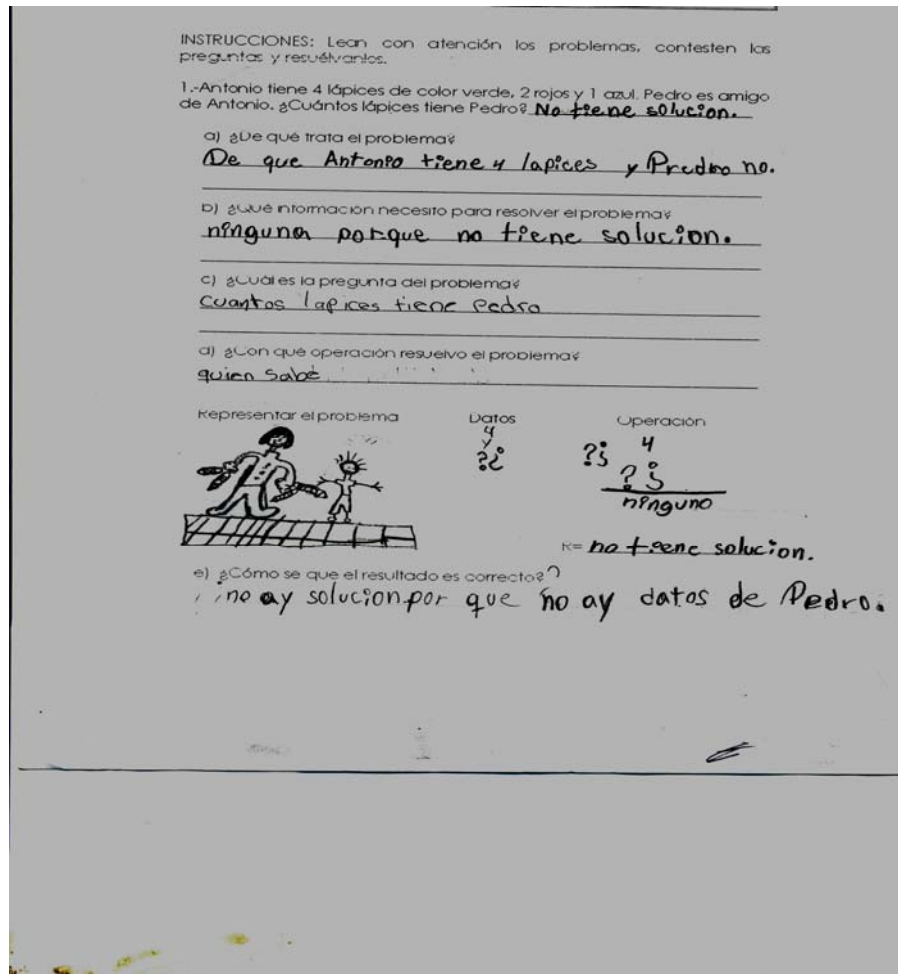 INSTRUCCIONES: Lean con atención los problemas, contesten las
preguntas y resuélvanlos.
1.-Antonio tiene 4 lápices de color verde, 2 rojos y 1 azul. Pedro es amigo
de Antonio. ¿Cuántos lápices tiene Pedro? No tiene solucion.
a) ¿De qué trata el problema?
De que Antonio tiene 4 lapices y Predro no.
b) ¿Qué información necesito para resolver el problema?
ninguna porque no tiene solucion.
c) ¿Cuál es la pregunta del problema?
cuantos lapices tiene Pedro
d) ¿Con qué operación resuelvo el problema?
quien sabe
Representar el problema Datos Operación
4 4
y ?¿
?¿ ?¿
ninguno
R= no tiene solucion.
e) ¿Cómo se que el resultado es correcto?
no ay solucion por que no ay datos de Pedro.